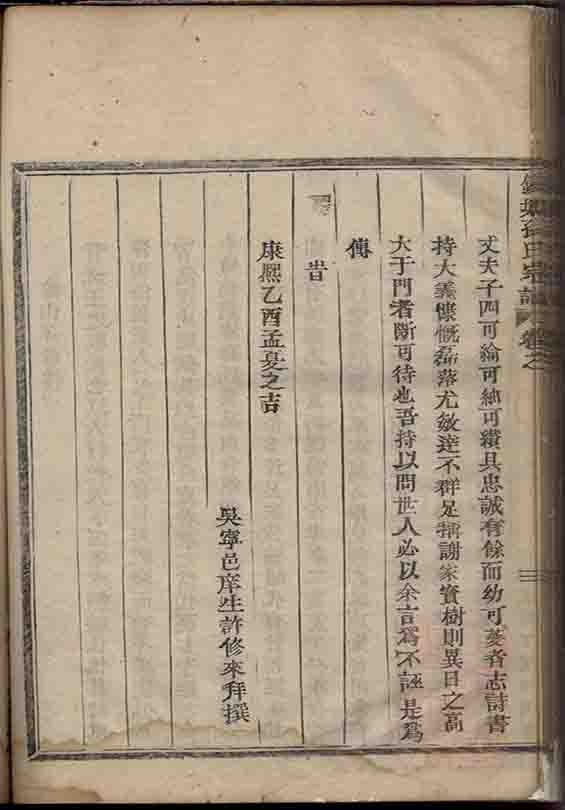 孫氏宗譜 卷之
丈夫子四可綸可純可纘具忠誠有餘而幼可菱者志詩書
持大義慷慨磊落尤敏達不群足稱謝家寶樹則異日之高
大于門者斷可待也吾持以問世人必以余言爲不誣是爲
傳
旹
康熙乙酉孟夏之吉
吳寧邑庠生許修來拜撰